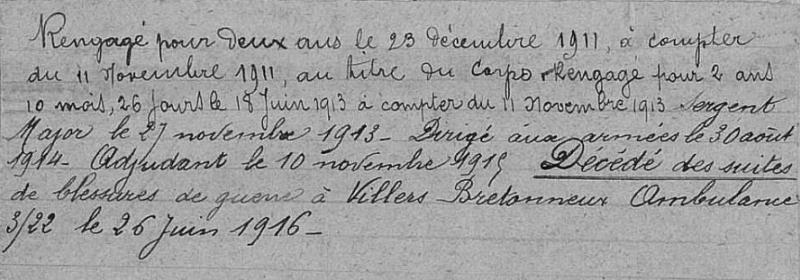 Rengagé pour deux ans le 23 décembre 1911, à compter
du 11 Novembre 1911, au titre du Corps Rengagé pour 2 ans
10 mois, 26 jours le 18 Juin 1913 à compter du 11 Novembre 1913 Sergent
Major le 27 novembre 1913 - Dirigé aux armées le 30 août
1914 - Adjudant le 10 novembre 1915 Décédé des suites
de blessures de guerre à Villers Bretonneux Ambulance
3/22 le 26 Juin 1916 -